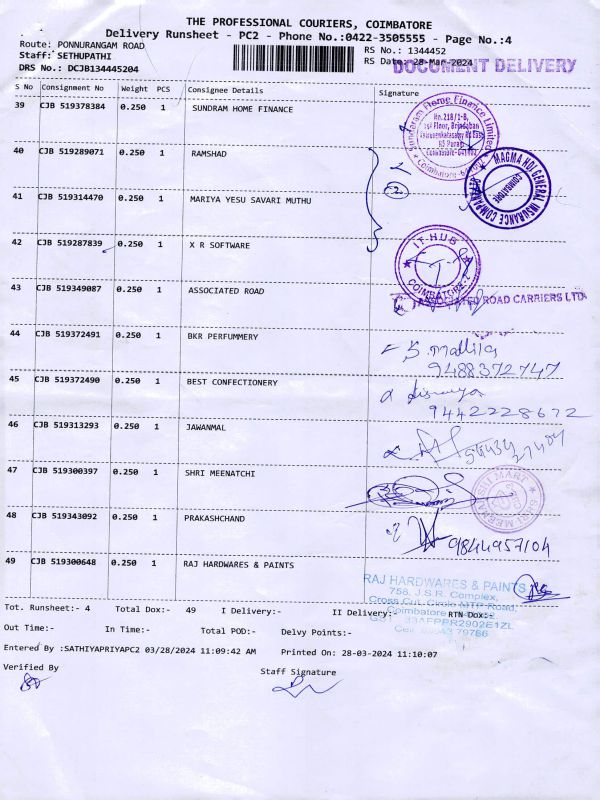 THE PROFESSIONAL COURIERS, COIMBATORE
Delivery Runsheet - PC2 - Phone No.:0422-3505555 - Page No.:4
Route: PONNURANGAM ROAD
RS No.: 1344452
Staff: SETHUPATHI
RS Date: 28-Mar-2024
DRS No.: DCJB134445204
DOCUMENT DELIVERY
S No Consignment No Weight PCS Consignee Details Signature
39 CJB 519378384 0.250 1 SUNDRAM HOME FINANCE
Sundaram Home Finance Limited
No.218/1-B,
1st Floor, Brindaban
R.S Puram
Coimbatore-641002
40 CJB 519289071 0.250 1 RAMSHAD
MAGMA HDI GENERAL INSURANCE COMPANY
COIMBATORE
41 CJB 519314470 0.250 1 MARIYA YESU SAVARI MUTHU
42 CJB 519287839 0.250 1 X R SOFTWARE
IT-HUB
COIMBATORE-2
43 CJB 519349087 0.250 1 ASSOCIATED ROAD
ASSOCIATED ROAD CARRIERS LTD
44 CJB 519372491 0.250 1 BKR PERFUMMERY
9488372747
45 CJB 519372490 0.250 1 BEST CONFECTIONERY
9442228672
46 CJB 519313293 0.250 1 JAWANMAL
47 CJB 519300397 0.250 1 SHRI MEENATCHI
48 CJB 519343092 0.250 1 PRAKASHCHAND
9844957104
49 CJB 519300648 0.250 1 RAJ HARDWARES & PAINTS
RAJ HARDWARES & PAINTS
758, J.S.R. Complex,
Cross Cut, Circle MTP Road,
Tot. Runsheet:- 4 Total Dox:- 49 I Delivery:- II Delivery:- RTN Dox:-
Out Time:- In Time:- Total POD:- Delvy Points:-
Entered By :SATHIYAPRIYAPC2 03/28/2024 11:09:42 AM Printed On: 28-03-2024 11:10:07
Verified By Staff Signature